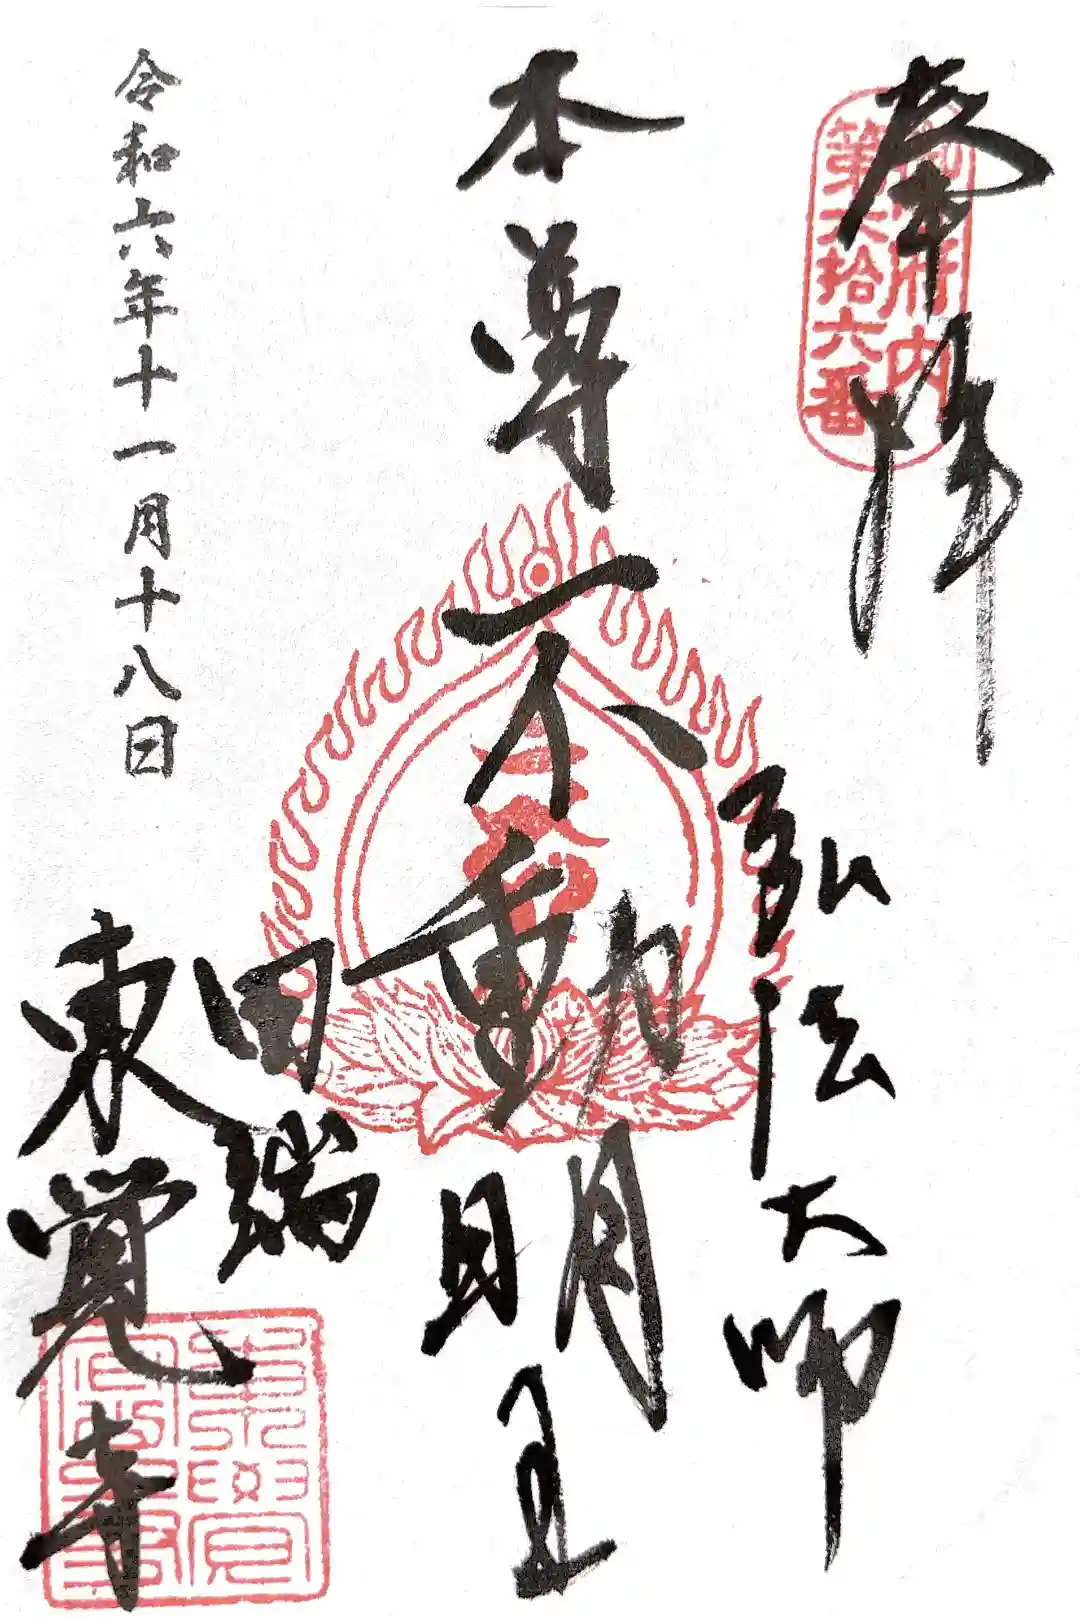 奉拝
府内
第六拾六番
弘法大師
本尊不動明王
田端
東覚寺
令和六年十一月十八日